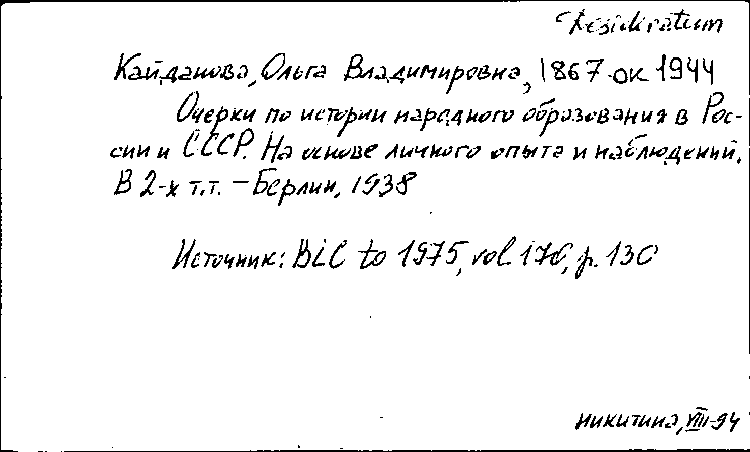 Desideratum
Кайданова, Ольга Владимировна, 1867-ок 1944
Очерки по истории народного образования в Рос-
сии и СССР. На основе личного опыта и наблюдений.
В 2-х т.т. – Берлин, 1938
Источник: BLC to 1975, vol. 176, p. 130
Никитина, VIII-94